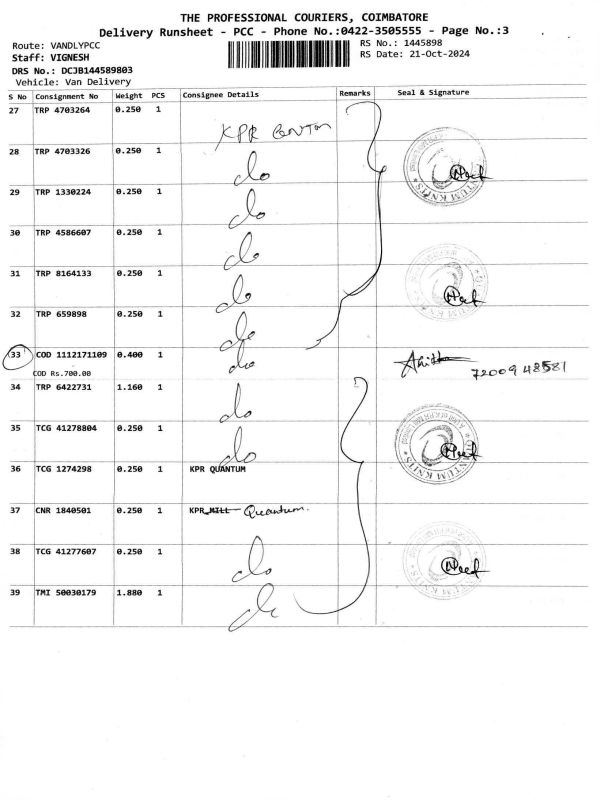 THE PROFESSIONAL COURIERS, COIMBATORE
Delivery Runsheet - PCC - Phone No.:0422-3505555 - Page No.:3
Route: VANDLYPCC
RS No.: 1445898
Staff: VIGNESH
RS Date: 21-Oct-2024
DRS No.: DCJB144589803
Vehicle: Van Delivery
S No Consignment No Weight PCS Consignee Details Remarks Seal & Signature
27 TRP 4703264 0.250 1
KPR
28 TRP 4703326 0.250 1 do
29 TRP 1330224 0.250 1 do
30 TRP 4586607 0.250 1 do
31 TRP 8164133 0.250 1 do
32 TRP 659898 0.250 1 do
33 COD 1112171109 0.400 1 do
72009 48581
COD Rs.700.00
34 TRP 6422731 1.160 1 do
35 TCG 41278804 0.250 1 do
36 TCG 1274298 0.250 1 KPR QUANTUM
37 CNR 1840501 0.250 1 KPR MILL Quantum.
38 TCG 41277607 0.250 1 do
39 TMI 50030179 1.880 1 do